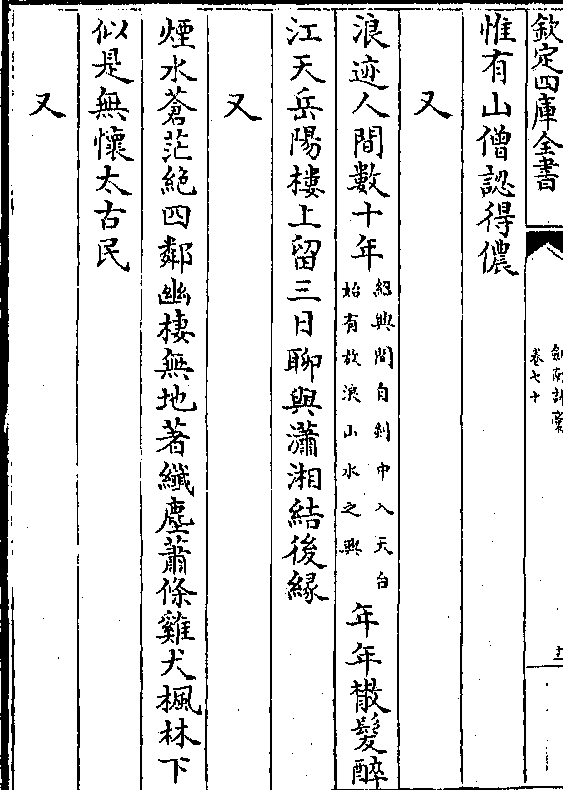 欽定四庫全書
劍南詩藁
卷七十
十一
惟有山僧認得儂
又
浪迹人間數十年紹興間自剡中入天台始有放浪山水之興年年散髮醉
江天岳陽樓上留三日聊與瀟湘結後緣
又
煙水蒼茫絶四鄰幽棲無地著纖塵蕭條雞犬楓林下
似是無懷太古民
又